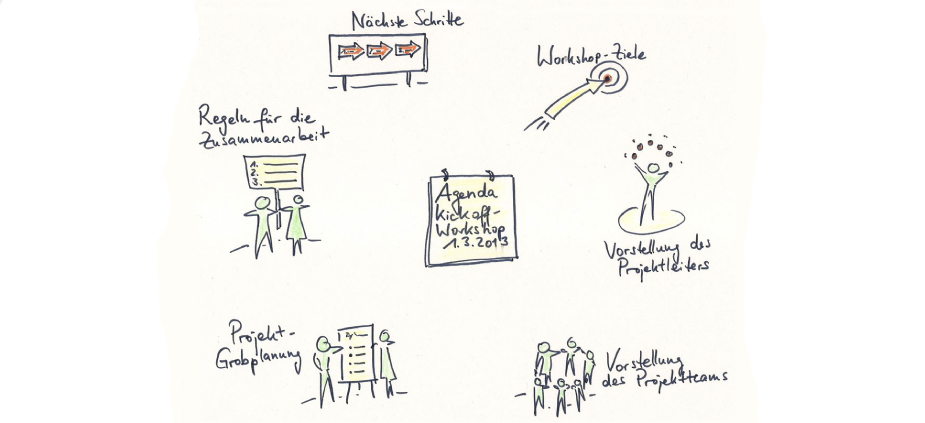 Nächste Schritte
Workshop-Ziele
Regeln für die
Zusammenarbeit
1.
2.
3.
Agenda
Kickoff-
Workshop
1.3.2013
Vorstellung des
Projektleiters
Projekt-
Grobplanung
Vorstellung
des Projektteams